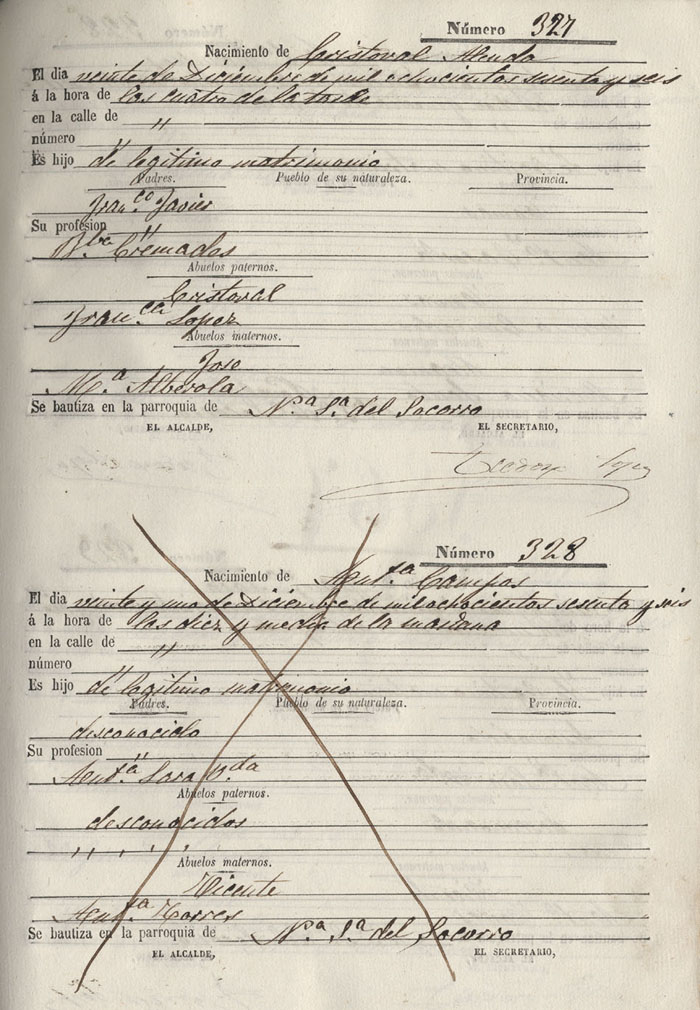 Número 327
Nacimiento de Cristoval Alenda
El dia veinte de Diciembre de mil ochocientos sesenta y seis
á la hora de las cuatro de la tarde
en la calde de "
número "
Es hijo de legitimo matrimonio
Padres. Pueblo de su naturaleza. Provincia.
Fran.co Javier
Su profesion "
B.be Cremades
Abuelos paternos.
Cristoval
Fran.ca Lopez
Abuelos maternos.
Jose
M.a Alberola
Se bautiza en la parroquia de N.a S.a del Socorro
EL ALCALDE, EL SECRETARIO,
Número 328
Nacimiento de Ant.a Campos
El dia veinte y uno de Diciembre de mil ochocientos sesenta y seis
á la hora de las diez y media de la mañana
en la calle de "
número "
Es hijo de legitimo matrimonio
Padres. Pueblo de su naturaleza. Provincia.
desconocido
Su profesion "
Ant.a Sara V.da
Abuelos paternos.
desconocidos
" " " "
Abuelos maternos.
Vicente
Ant.a Torres
Se bautiza en la parroquia de N.a S.a del Socorro
EL ALCALDE, EL SECRETARIO,